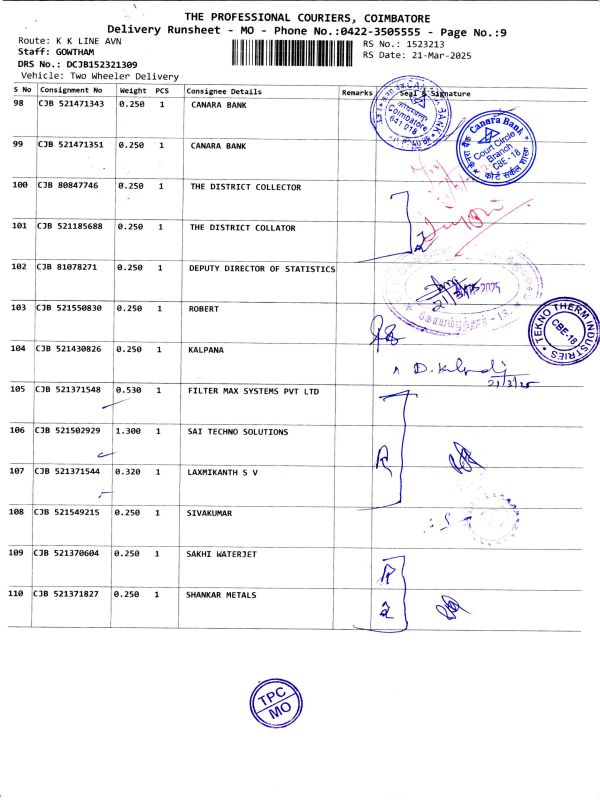 THE PROFESSIONAL COURIERS, COIMBATORE
Delivery Runsheet - MO - Phone No.:0422-3505555 - Page No.:9
Route: K K LINE AVN
RS No.: 1523213
Staff: GOWTHAM
RS Date: 21-Mar-2025
DRS No.: DCJB152321309
Vehicle: Two Wheeler Delivery
S No Consignment No Weight PCS Consignee Details Remarks Seal & Signature
98 CJB 521471343 0.250 1 CANARA BANK
Coimbatore
641 018
99 CJB 521471351 0.250 1 CANARA BANK
Canara Bank
Court Circle
Branch
CBE - 18
100 CJB 80847746 0.250 1 THE DISTRICT COLLECTOR
101 CJB 521185688 0.250 1 THE DISTRICT COLLATOR
102 CJB 81078271 0.250 1 DEPUTY DIRECTOR OF STATISTICS
103 CJB 521550830 0.250 1 ROBERT
TEKNO THERM INDUSTRIES
CBE-18
104 CJB 521430826 0.250 1 KALPANA
21/3/25
105 CJB 521371548 0.530 1 FILTER MAX SYSTEMS PVT LTD
106 CJB 521502929 1.300 1 SAI TECHNO SOLUTIONS
107 CJB 521371544 0.320 1 LAXMIKANTH S V
108 CJB 521549215 0.250 1 SIVAKUMAR
109 CJB 521370604 0.250 1 SAKHI WATERJET
110 CJB 521371827 0.250 1 SHANKAR METALS
TPC
MO